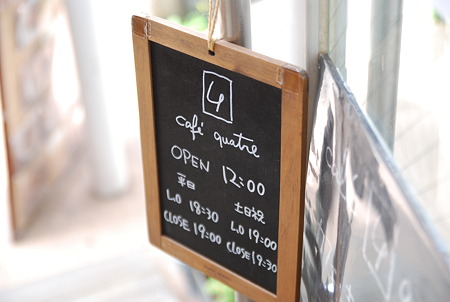 4
café quatre
OPEN 12:00
平日 土日祝
L.O 18:30 L.O 19:00
CLOSE 19:00 CLOSE 19:30